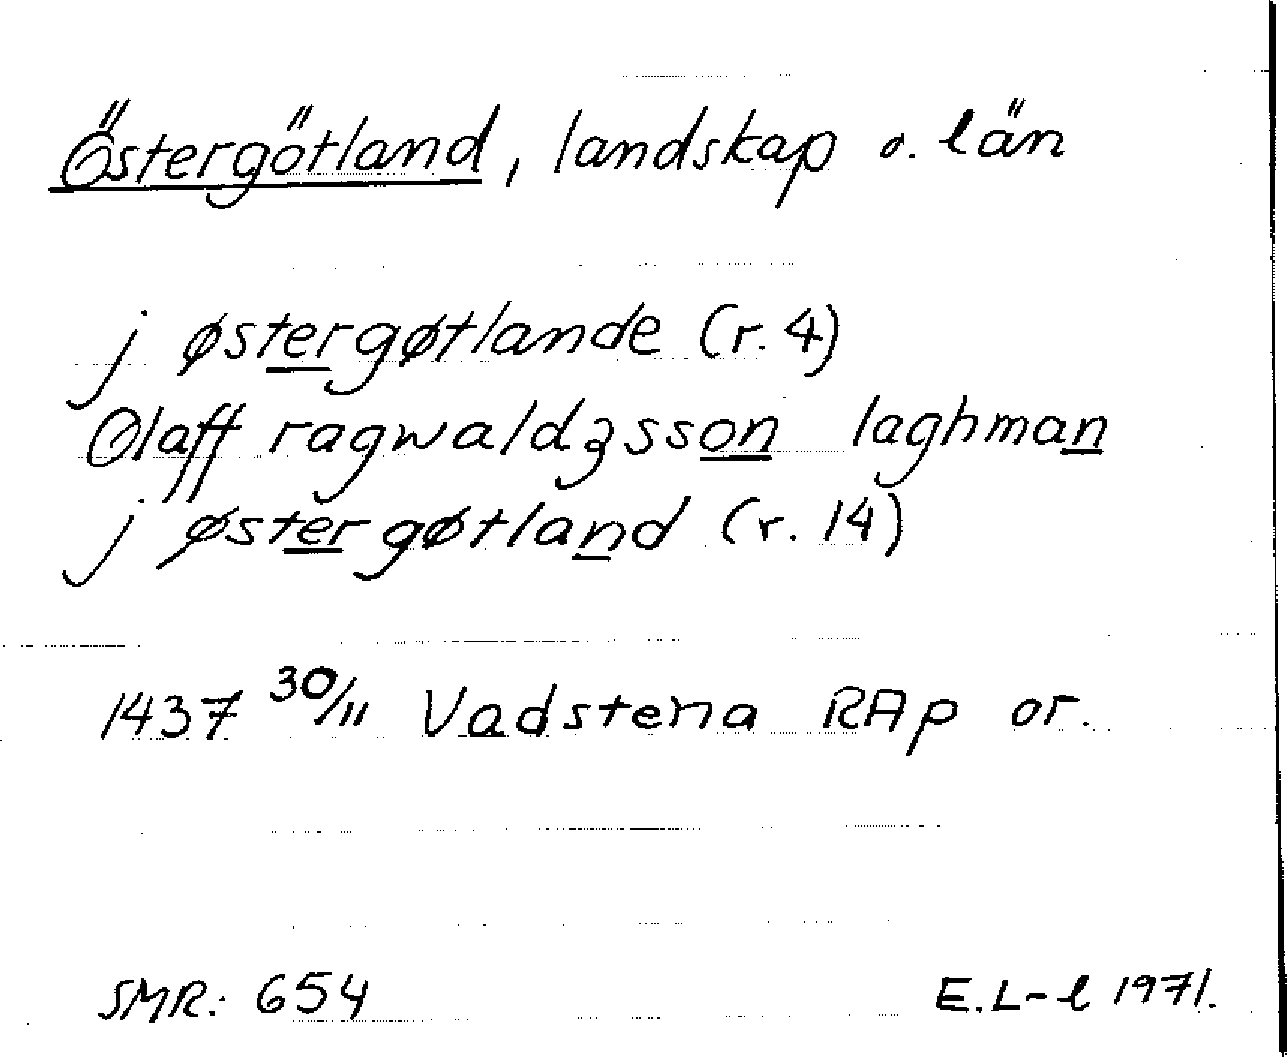 Östergötland, landskap o. län
j østergøtlande (r. 4)
Olaff ragwaldzsson laghman
j østergøtland (r. 14)
1437 30/11 Vadstena RAp or.
SMR: 654
E.L-l 1971.